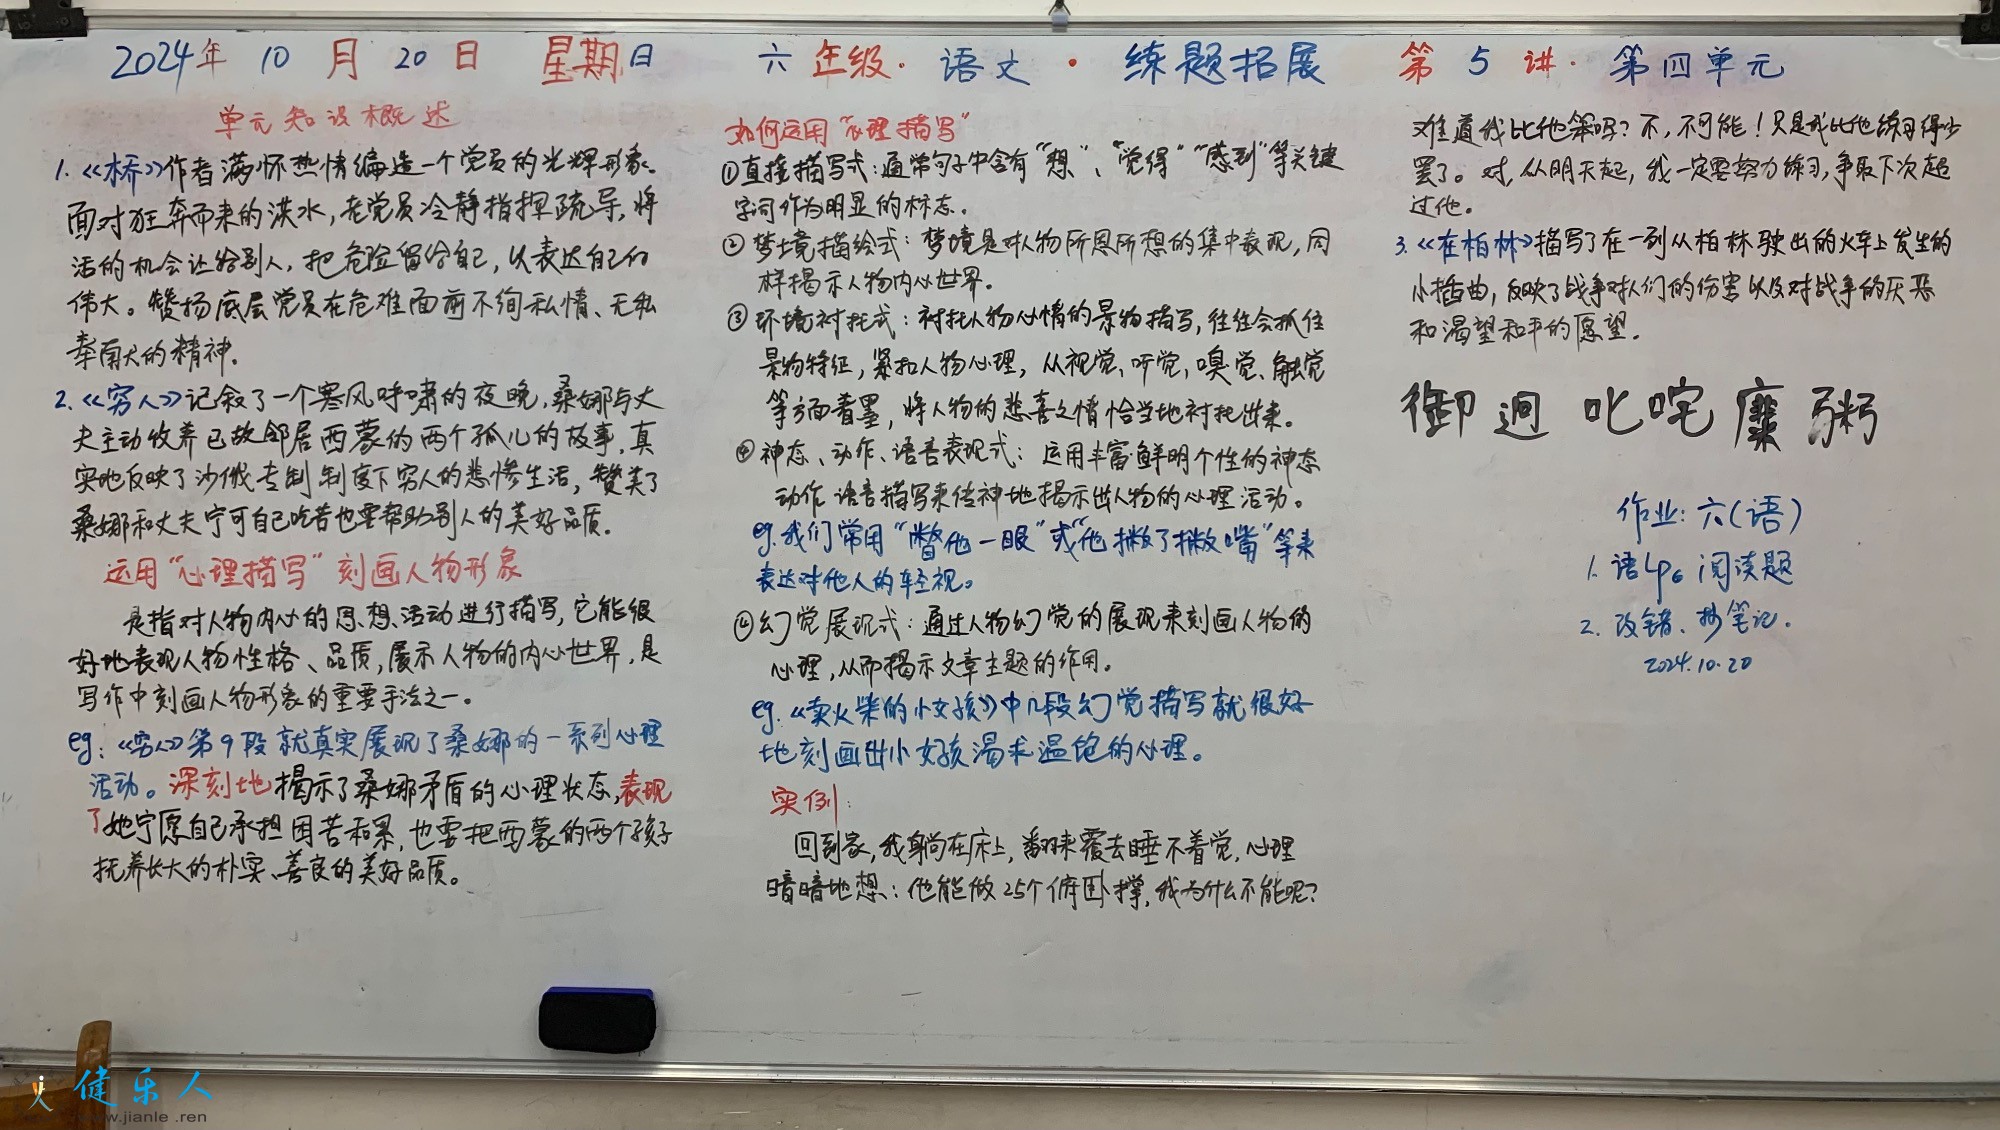 2024年 10 月 20 日 星期日 六年级·语文·练题拓展 第 5 讲·第四单元
单元知识概述
1.《桥》作者满怀热情编造一个党员的光辉形象。
面对狂奔而来的洪水,老党员冷静指挥疏导,将
活的机会让给别人,把危险留给自己,以表达自己的
伟大。赞扬底层党员在危难面前不徇私情、无私
奉献的精神。
2.《穷人》记叙了一个寒风呼啸的夜晚,桑娜与丈
夫主动收养已故邻居西蒙的两个孤儿的故事,真
实地反映了沙俄专制制度下穷人的悲惨生活,赞美了
桑娜和丈夫宁可自己吃苦也要帮助别人的美好品质。
运用“心理描写”刻画人物形象
是指对人物内心的思想、活动进行描写,它能很
好地表现人物性格、品质,展示人物的内心世界,是
写作中刻画人物形象的重要手法之一。
eg:《穷人》第9段就真实展现了桑娜的一系列心理
活动。深刻地揭示了桑娜矛盾的心理状态,表现
了她宁愿自己承担困苦和累,也要把西蒙的两个孩子
抚养长大的朴实、善良的美好品质。
如何运用“心理描写”
①直接描写式:通常句子中含有“想”、“觉得”“感到”等关键
字词作为明显的标志。
②梦境描绘式:梦境是对人物所思所想的集中表现,同
样揭示人物内心世界。
③环境衬托式:衬托人物心情的景物描写,往往会抓住
景物特征,紧扣人物心理,从视觉、听觉、嗅觉、触觉
等方面着墨,将人物的悲喜之情恰当地衬托出来。
④神态、动作、语言表现式:运用丰富鲜明个性的神态
动作语言描写来传神地揭示出人物的心理活动。
eg.我们常用“瞥他一眼”或“他撇了撇嘴”等来
表达对他人的轻视。
④幻觉展现式:通过人物幻觉的展现来刻画人物的
心理,从而揭示文章主题的作用。
eg.《卖火柴的小女孩》中几段幻觉描写就很好
地刻画出小女孩渴求温饱的心理。
实例:
回到家,我躺在床上,翻来覆去睡不着觉,心理
暗暗地想:他能做25个俯卧撑,我为什么不能呢?
难道我比他笨吗?不,不可能!只是我比他练习得少
罢了。对,从明天起,我一定要努力练习,争取下次超
过他。
3.《在柏林》描写了在一列从柏林驶出的火车上发生的
小插曲,反映了战争对人们的伤害以及对战争的厌恶
和渴望和平的愿望。
御 迥 叱咤 糜粥
作业:六(语)
1.语4P6 阅读题
2.改错、抄笔记.
2024.10.20
健乐人
www.jianle.ren